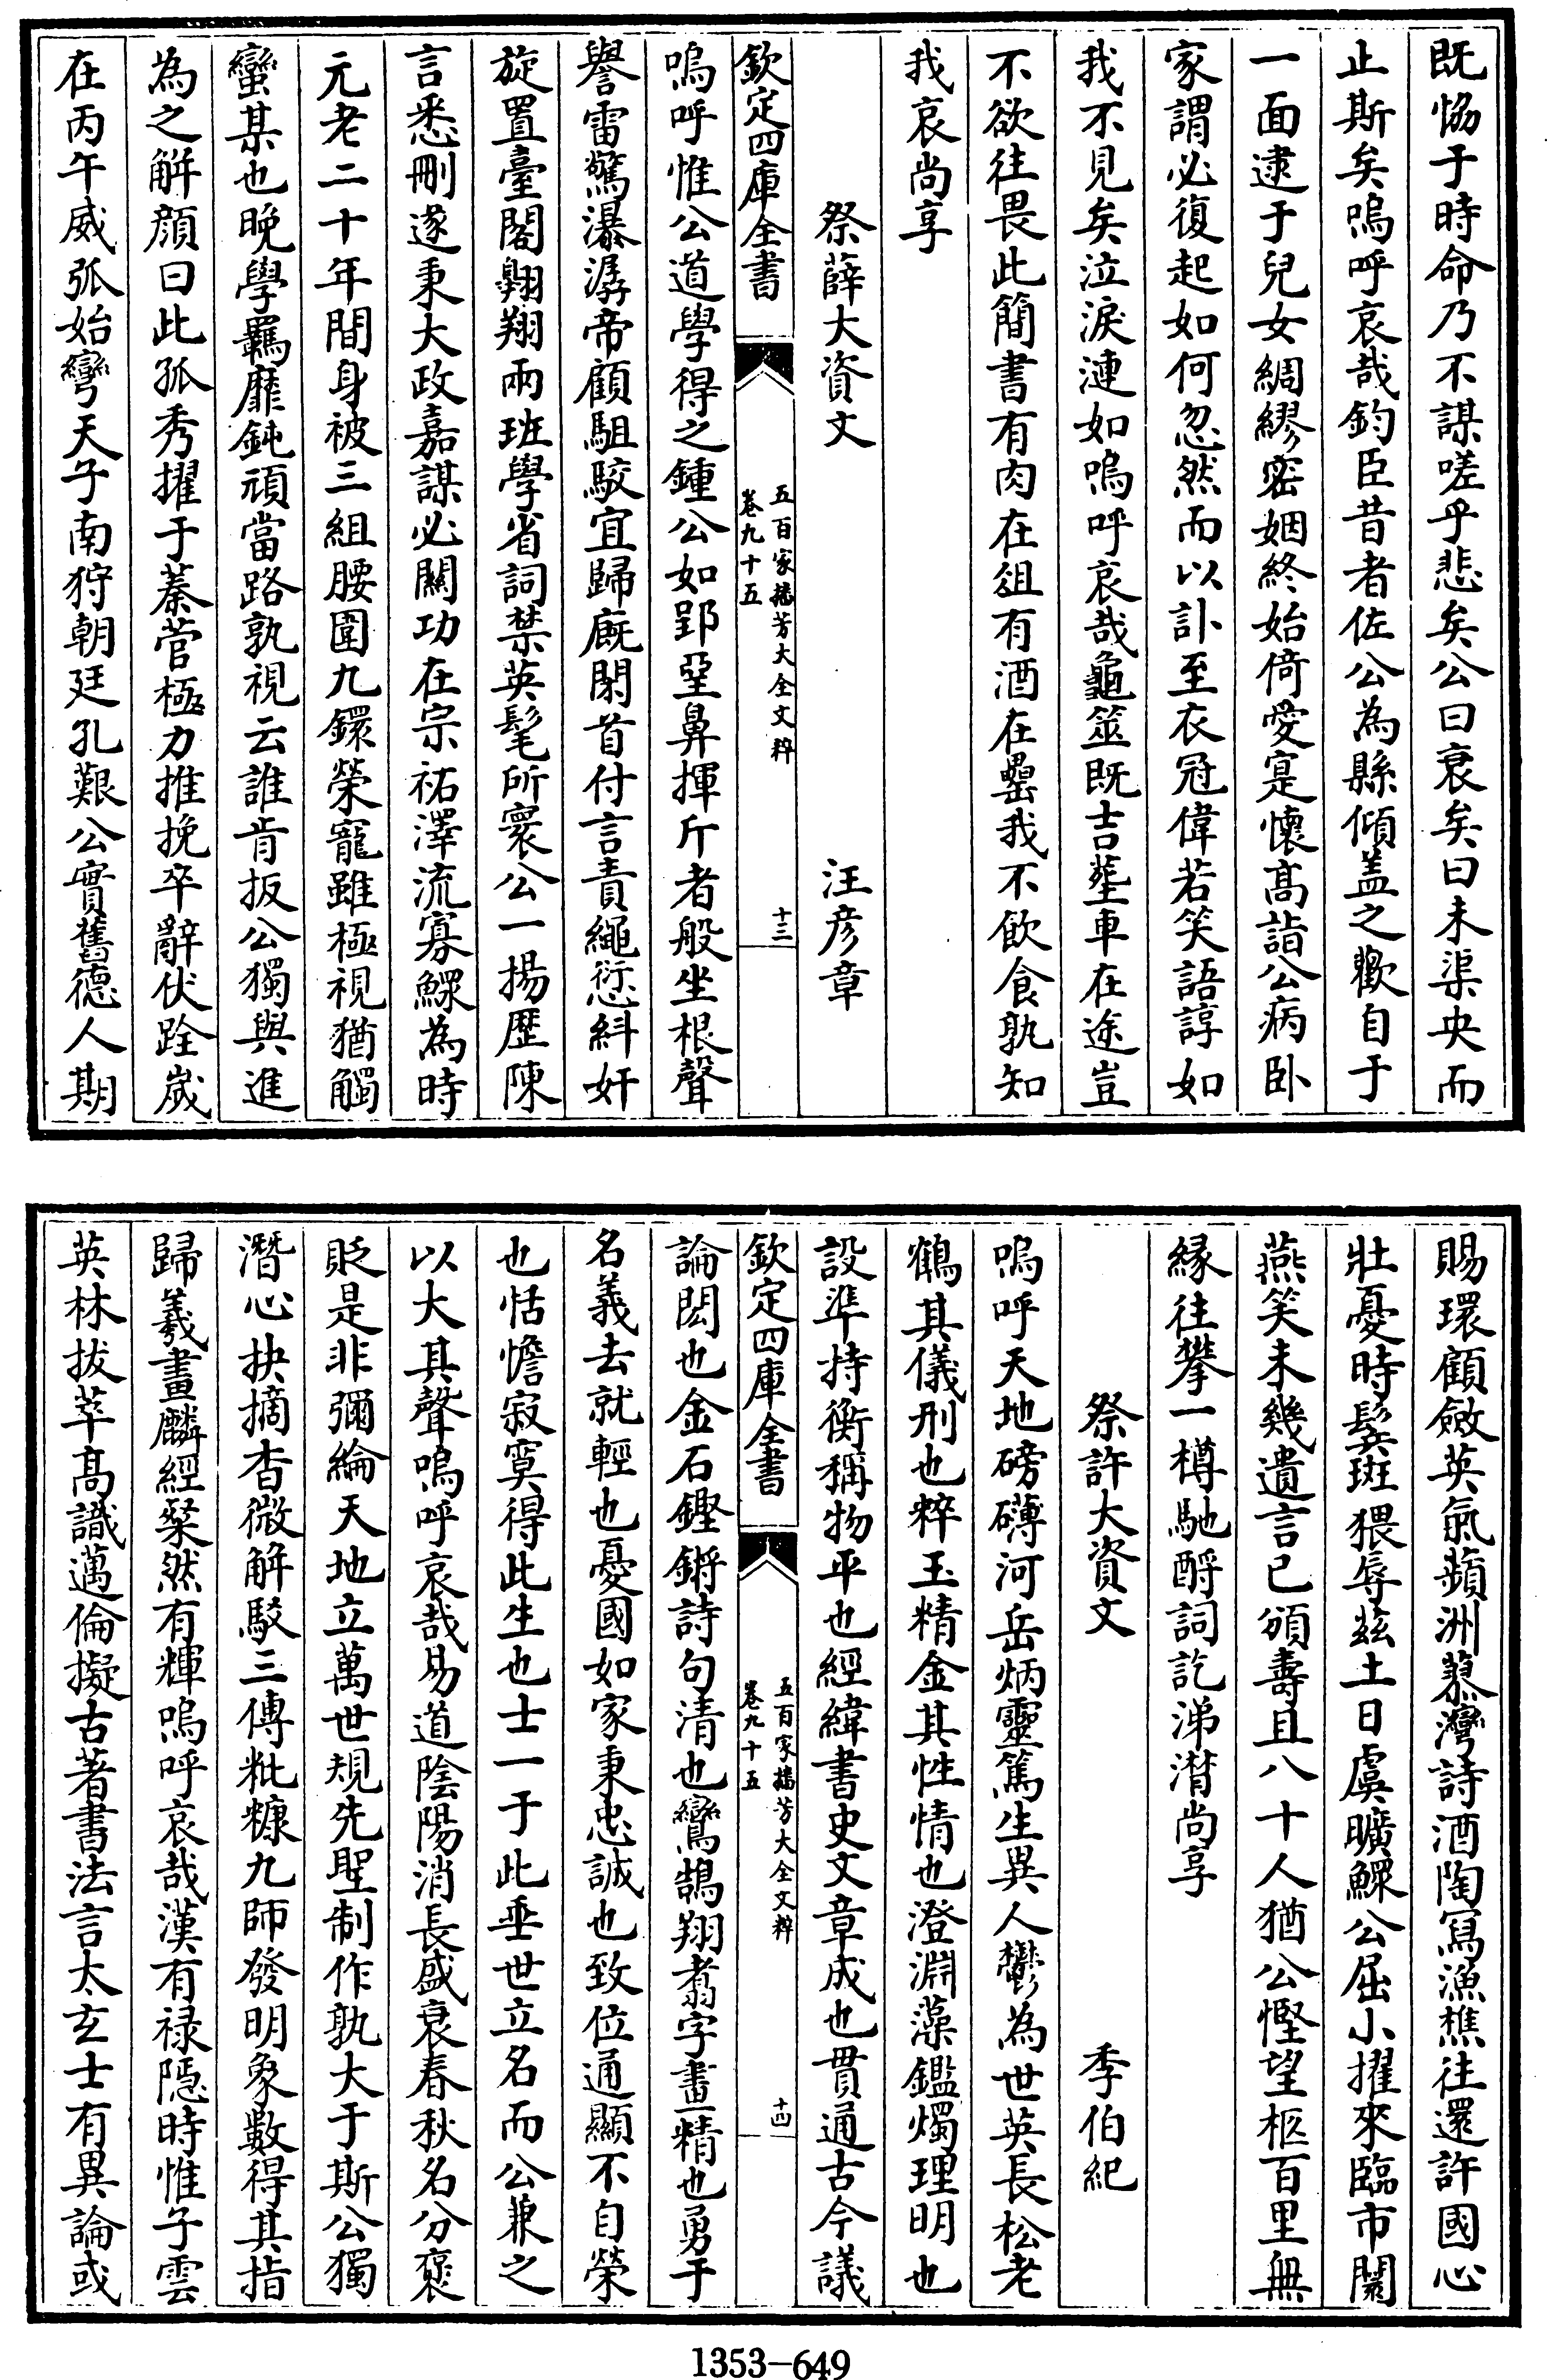 既恊于時命乃不謀嗟乎悲矣公曰衰矣曰未渠央而
止斯矣嗚呼哀哉鈞臣昔者佐公為縣傾盖之歡自于
一面逮于兒女綢繆宻姻終始倚愛寔懐髙詣公病卧
家謂必復起如何忽然而以訃至衣冠偉若笑語諄如
我不見矣泣淚漣如嗚呼哀哉龜筮既吉塟車在途豈
不欲往畏此簡書有肉在俎有酒在罍我不飲食孰知
我哀尚享
祭薛大資文 汪彦章
欽定四庫全書
五百家播芳大全文粹
卷九十五
十三
嗚呼惟公道學得之鍾公如郢堊鼻揮斤者般坐根聲
譽雷驚瀑潺帝顧駔駿宜歸廐閑首付言責繩愆糾奸
旋置臺閣翺翔兩班學省詞禁英髦所寰公一揚歴陳
言悉刪遂秉大政嘉謀必關功在宗祏澤流寡鰥為時
元老二十年間身被三組腰圍九鐶榮寵雖極視猶觸
蠻某也晚學羈靡鈍頑當路孰視云誰肯扳公獨與進
為之解顔曰此孤秀擢于蓁菅極力推挽卒辭伏跧嵗
在丙午威弧始彎天子南狩朝廷孔艱公實舊徳人期
賜環顧斂英氣蘋洲蓼灣詩酒陶寫漁樵往還許國心
壯憂時鬂斑猥辱兹土日虞曠鰥公屈小擢來臨市闤
燕笑未幾遺言已頒壽且八十人猶公慳望柩百里無
縁往攀一樽馳酹詞訖涕潸尚享
祭許大資文 季伯紀
嗚呼天地磅礴河岳炳靈篤生異人鬱為世英長松老
鶴其儀刑也粹玉精金其性情也澄淵藻鑑燭理明也
設凖持衡稱物平也經緯書史文章成也貫通古今議
欽定四庫全書
五百家播芳大全文粹
卷九十五
十四
論閎也金石鏗鏘詩句清也鸞鵠翔翥字畫精也勇于
名義去就輕也憂國如家秉忠誠也致位通顯不自榮
也恬憺寂寞得此生也士一于此垂世立名而公兼之
以大其聲嗚呼哀哉易道陰陽消長盛衰春秋名分褒
貶是非彌綸天地立萬世規先聖制作孰大于斯公獨
潛心抉摘杳微解駁三傳粃糠九師發明象數得其指
歸羲畫麟經粲然有輝嗚呼哀哉漢有禄隠時惟子雲
英林拔萃髙識邁倫擬古著書法言太玄士有異論或
1353-649